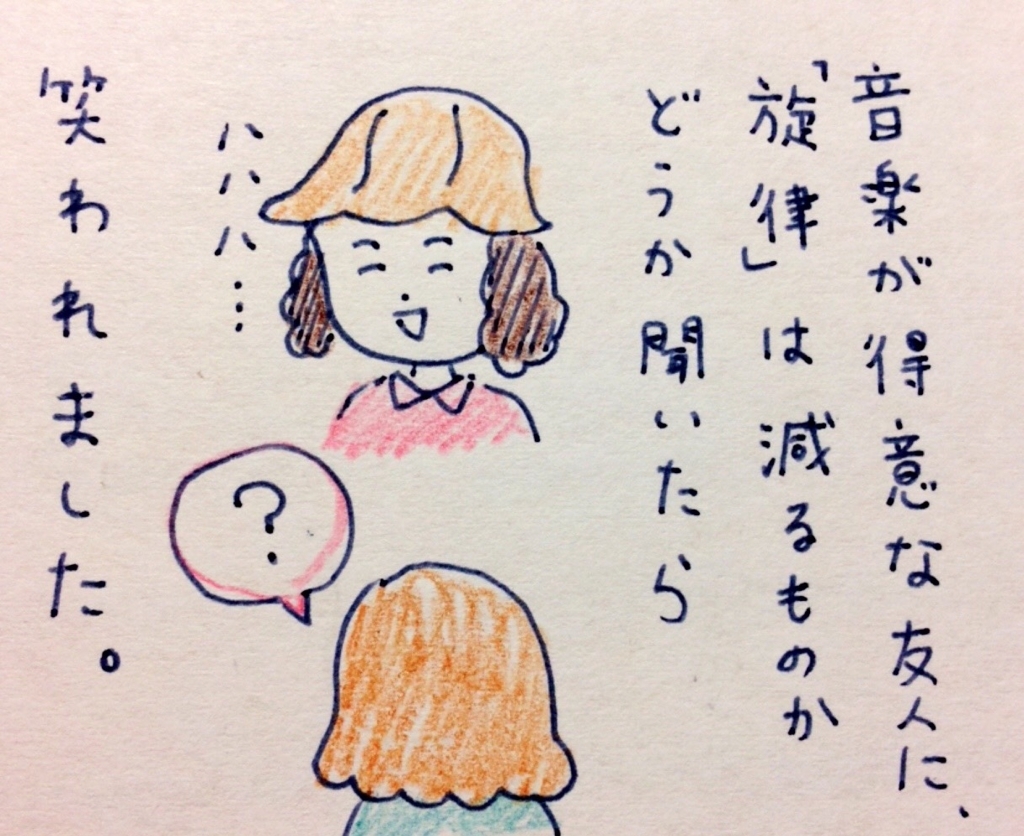 音楽が得意な友人に、
「旋律」は減るものか
どうか聞いたら
ハハハ…
?
笑われました。